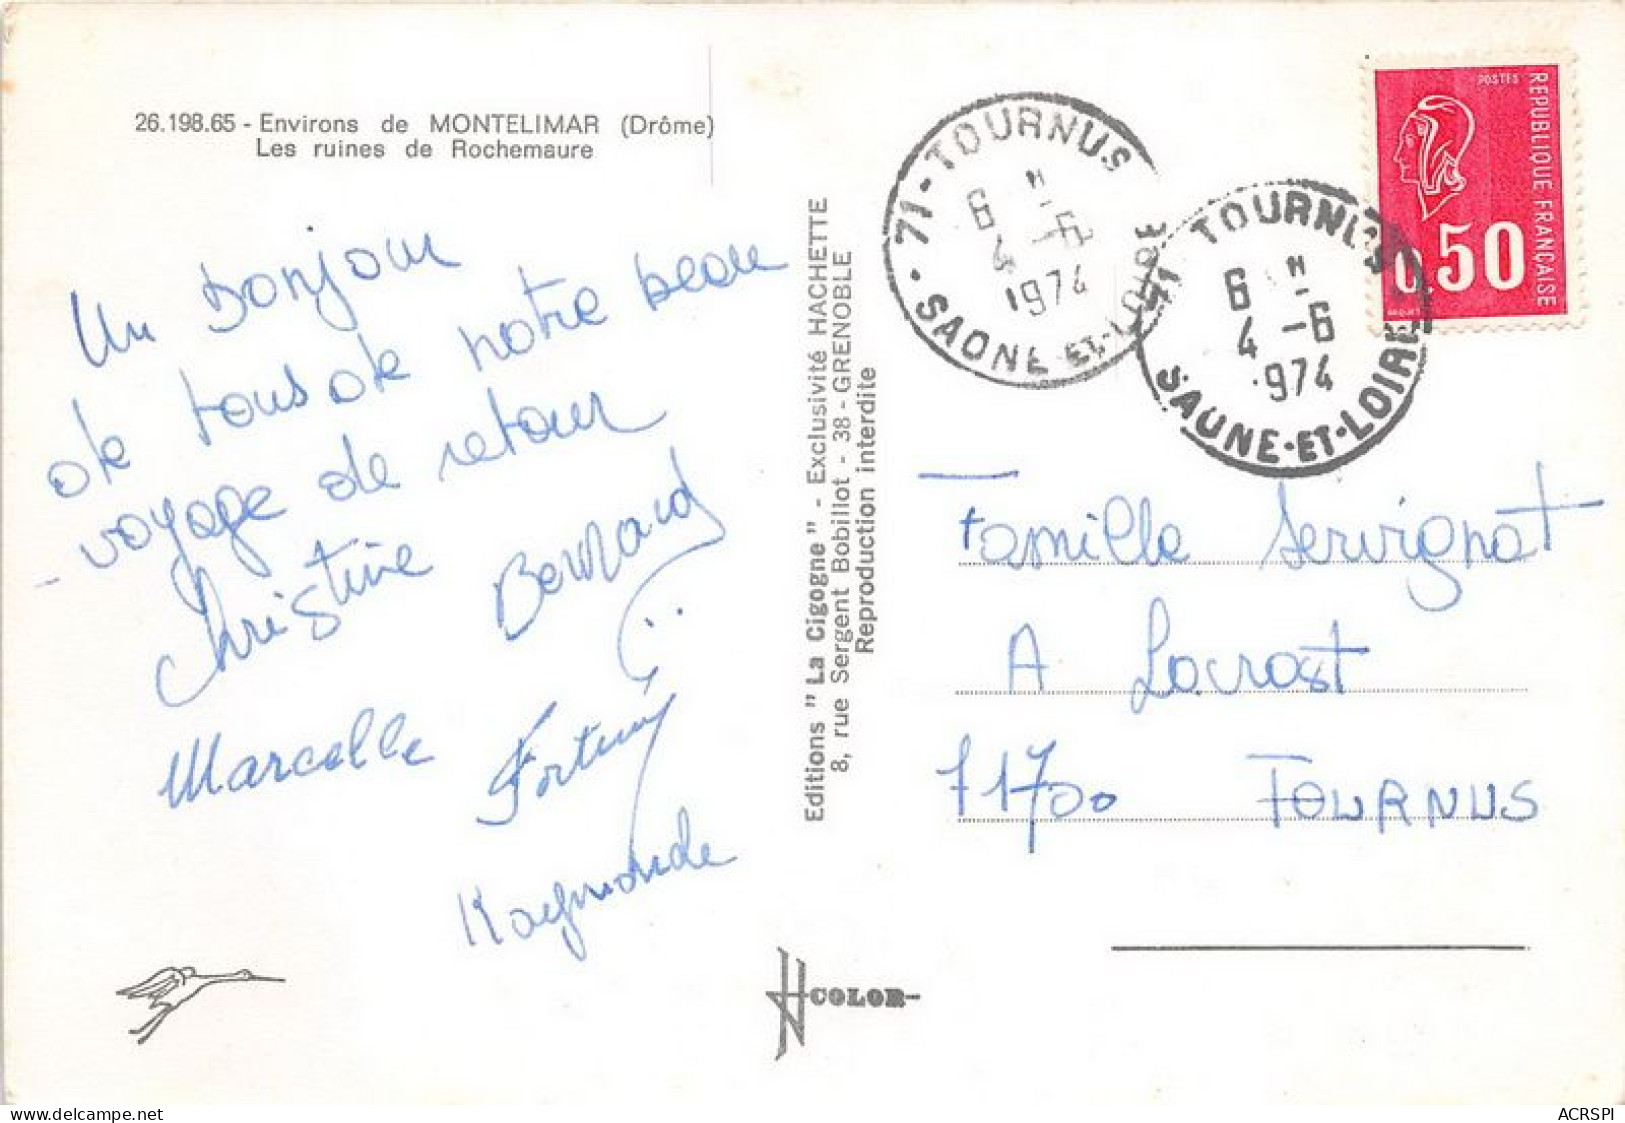 26.198.65 - Environs de MONTELIMAR (Drôme)
Les ruines de Rochemaure
Un Bonjour
de tous de notre beau
voyage de retour
Christine Bernard
Marcelle
Raymonde
Editions "La Cigogne" - Exclusivité HACHETTE
8, rue Sergent Bobillot - 38 - GRENOBLE
Reproduction interdite
COLOR
71 - TOURNUS
6 H
4 - 6
1974
SAONE-ET-LOIRE
71 TOURNUS
6 H
4 - 6
1974
SAONE-ET-LOIRE
POSTES
REPUBLIQUE FRANÇAISE
0,50
Famille Servignat
A Lacrost
71700 TOURNUS
ACRSPI
delcampe.net